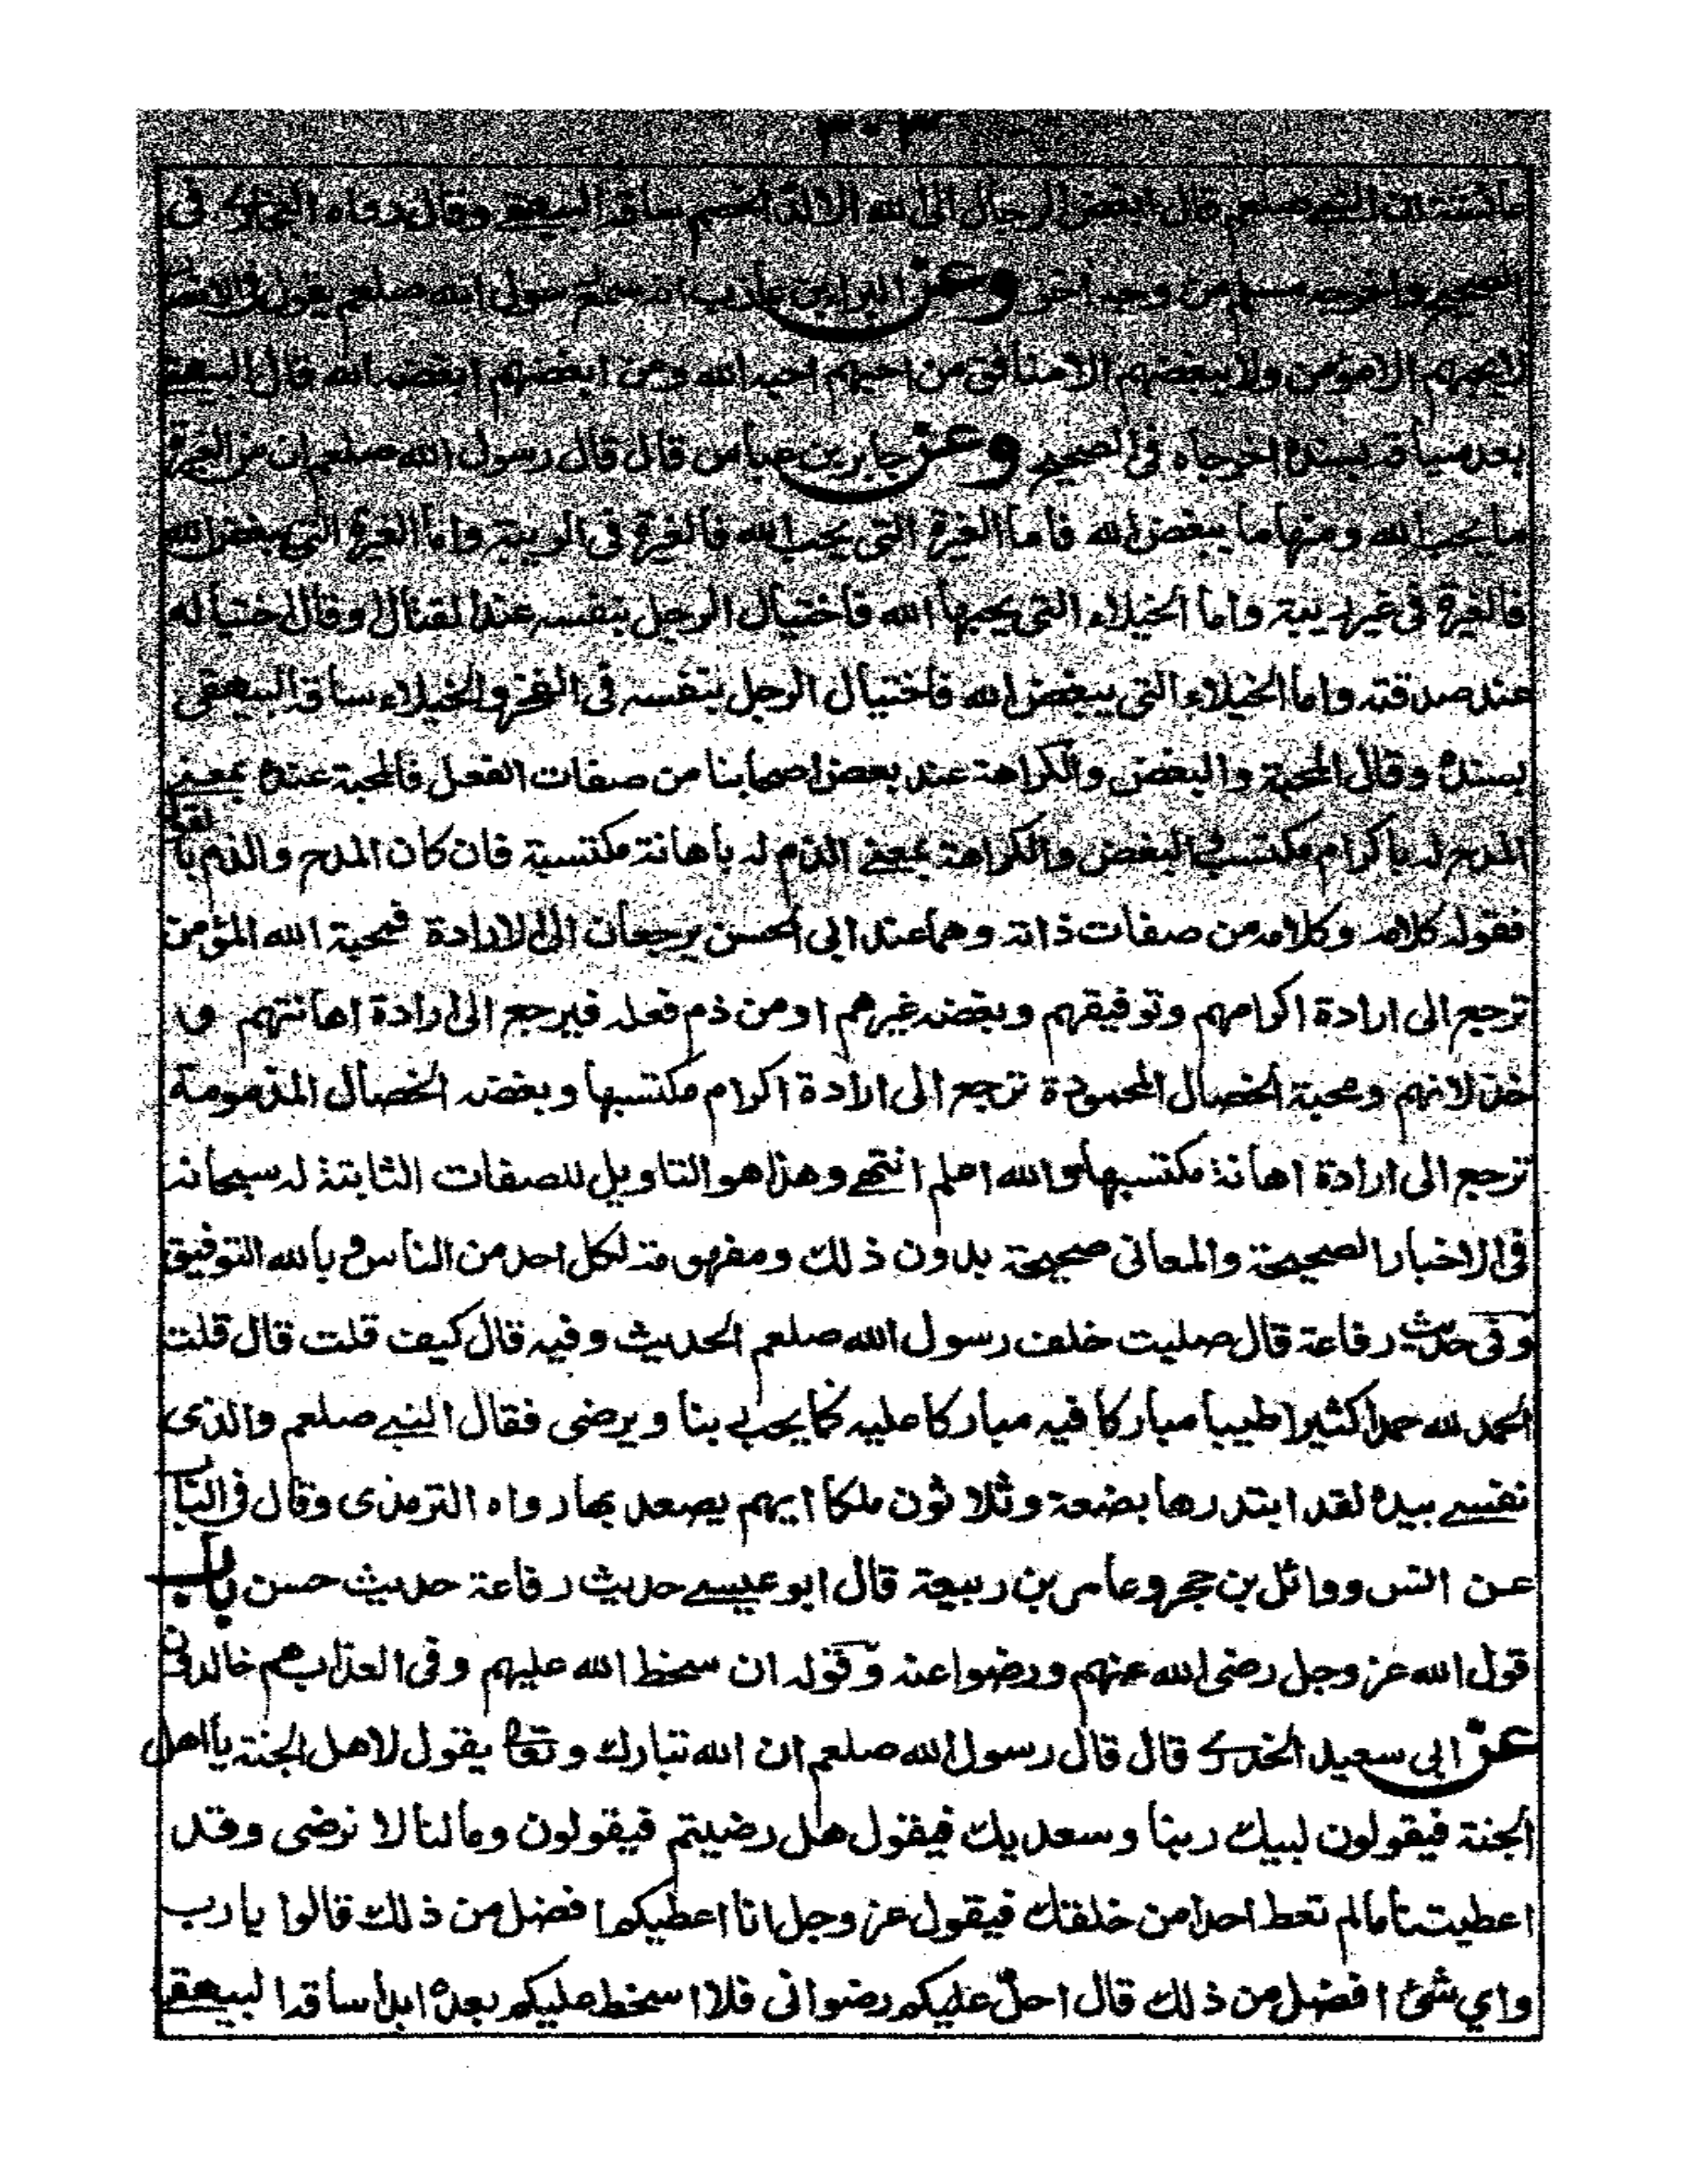 ٣٠٣
عائشة ان النبي صلعم قال ابغض الرجال الى الله الالد الخصم ساقه البيهقي وقال رواه البخاري فى
الصحيح واخرجه مسلم من وجه اخر وعن البراء بن عازب انه سمع رسول الله صلعم يقول فى الانصار
لا يحبهم الا مؤمن ولا يبغضهم الا منافق من احبهم احبه الله ومن ابغضهم ابغضه الله قال البيهقي
بعد سياقه بسنده اخرجاه فى الصحيح وعن جابر بن عباس قال قال رسول الله صلعم ان من الغيرة
ما يحب الله ومنها ما يبغض الله فاما الغيرة التى يحب الله فالغيرة فى الريبة واما الغيرة التي يبغض الله
فالغيرة فى غير ريبة واما الخيلاء التى يحبها الله فاختيال الرجل بنفسه عند القتال وقال اختياله
عند صدقته واما الخيلاء التى يبغض الله فاختيال الرجل بنفسه فى الفخر والخيلاء ساقه البيهقى
بسنده وقال المحبة والبغض والكراهة عند بعض اصحابنا من صفات الفعل فالمحبة عنده بمعنى
المدح له باكرام مكتسب والبغض والكراهة بمعنى الذم له باهانة مكتسبة فان كان المدح والذم بالقول
فقوله كلامه وكلامه من صفات ذاته وهما عند ابى الحسن يرجعان الى الارادة فمحبة الله المؤمن
ترجع الى ارادة اكرامهم وتوفيقهم وبغضه غيرهم او من ذم فعله فيرجع الى ارادة اهانتهم و
خذلانهم ومحبة الخصال المحمودة ترجع الى ارادة اكرام مكتسبها وبغضه الخصال المذمومة
ترجع الى ارادة اهانة مكتسبها والله اعلم انتهى وهذا هو التاويل للصفات الثابتة له سبحانه
فى الاخبار الصحيحة والمعانى صحيحة بدون ذلك ومفهومة لكل احد من الناس وبالله التوفيق
وفى حديث رفاعة قال صليت خلف رسول الله صلعم الحديث وفيه قال كيف قلت قال قلت
الحمد لله حمدا كثيرا طيبا مباركا فيه مباركا عليه كما يحب ربنا ويرضى فقال النبي صلعم والذى
نفسي بيده لقد ابتدرها بضعة وثلاثون ملكا ايهم يصعد بها رواه الترمذى وقال فى الباب
عن انس ووائل بن حجر وعامر بن ربيعة قال ابو عيسى حديث رفاعة حديث حسن باب
قول الله عز وجل رضى الله عنهم ورضوا عنه وقوله ان سخط الله عليهم وفى العذاب هم خالدون
عن ابى سعيد الخدري قال قال رسول الله صلعم ان الله تبارك وتعالى يقول لاهل الجنة يا اهل
الجنة فيقولون لبيك ربنا وسعديك فيقول هل رضيتم فيقولون ومالنا لا نرضى وقد
اعطيتنا مالم تعط احدا من خلقك فيقول عز وجل انا اعطيكم افضل من ذلك قالوا يا رب
واي شئ افضل من ذلك قال احل عليكم رضوانى فلا اسخط عليكم بعده ابدا ساقه البيهقي